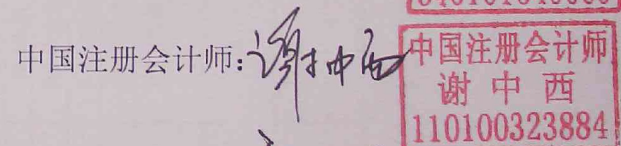 中国注册会计师:谢中西
中国注册会计师
谢中西
110100323884